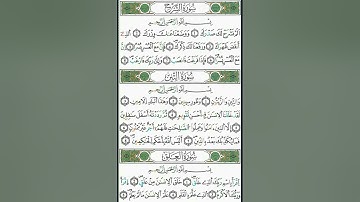 سُورَةُ الشَّرْحِ
بِسْمِ اللَّهِ الرَّحْمَٰنِ الرَّحِيمِ
أَلَمْ نَشْرَحْ لَكَ صَدْرَكَ ١ وَوَضَعْنَا عَنكَ وِزْرَكَ ٢ الَّذِي
أَنقَضَ ظَهْرَكَ ٣ وَرَفَعْنَا لَكَ ذِكْرَكَ ٤ فَإِنَّ مَعَ الْعُسْرِ يُسْرًا ٥ إِنَّ
مَعَ الْعُسْرِ يُسْرًا ٦ فَإِذَا فَرَغْتَ فَانصَبْ ٧ وَإِلَىٰ رَبِّكَ فَارْغَب ٨
سُورَةُ التِّينِ
بِسْمِ اللَّهِ الرَّحْمَٰنِ الرَّحِيمِ
وَالتِّينِ وَالزَّيْتُونِ ١ وَطُورِ سِينِينَ ٢ وَهَٰذَا الْبَلَدِ الْأَمِينِ ٣
لَقَدْ خَلَقْنَا الْإِنسَٰنَ فِي أَحْسَنِ تَقْوِيمٍ ٤ ثُمَّ رَدَدْنَٰهُ أَسْفَلَ سَٰفِلِينَ ٥
إِلَّا الَّذِينَ ءَامَنُوا وَعَمِلُوا الصَّٰلِحَٰتِ فَلَهُمْ أَجْرٌ غَيْرُ مَمْنُونٍ ٦
فَمَا يُكَذِّبُكَ بَعْدُ بِالدِّينِ ٧ أَلَيْسَ اللَّهُ بِأَحْكَمِ الْحَٰكِمِينَ ٨
سُورَةُ الْعَلَقِ
بِسْمِ اللَّهِ الرَّحْمَٰنِ الرَّحِيمِ
اقْرَأْ بِاسْمِ رَبِّكَ الَّذِي خَلَقَ ١ خَلَقَ الْإِنسَٰنَ مِنْ عَلَقٍ ٢ اقْرَأْ
وَرَبُّكَ الْأَكْرَمُ ٣ الَّذِي عَلَّمَ بِالْقَلَمِ ٤ عَلَّمَ الْإِنسَٰنَ مَا لَمْ يَعْلَمْ ٥